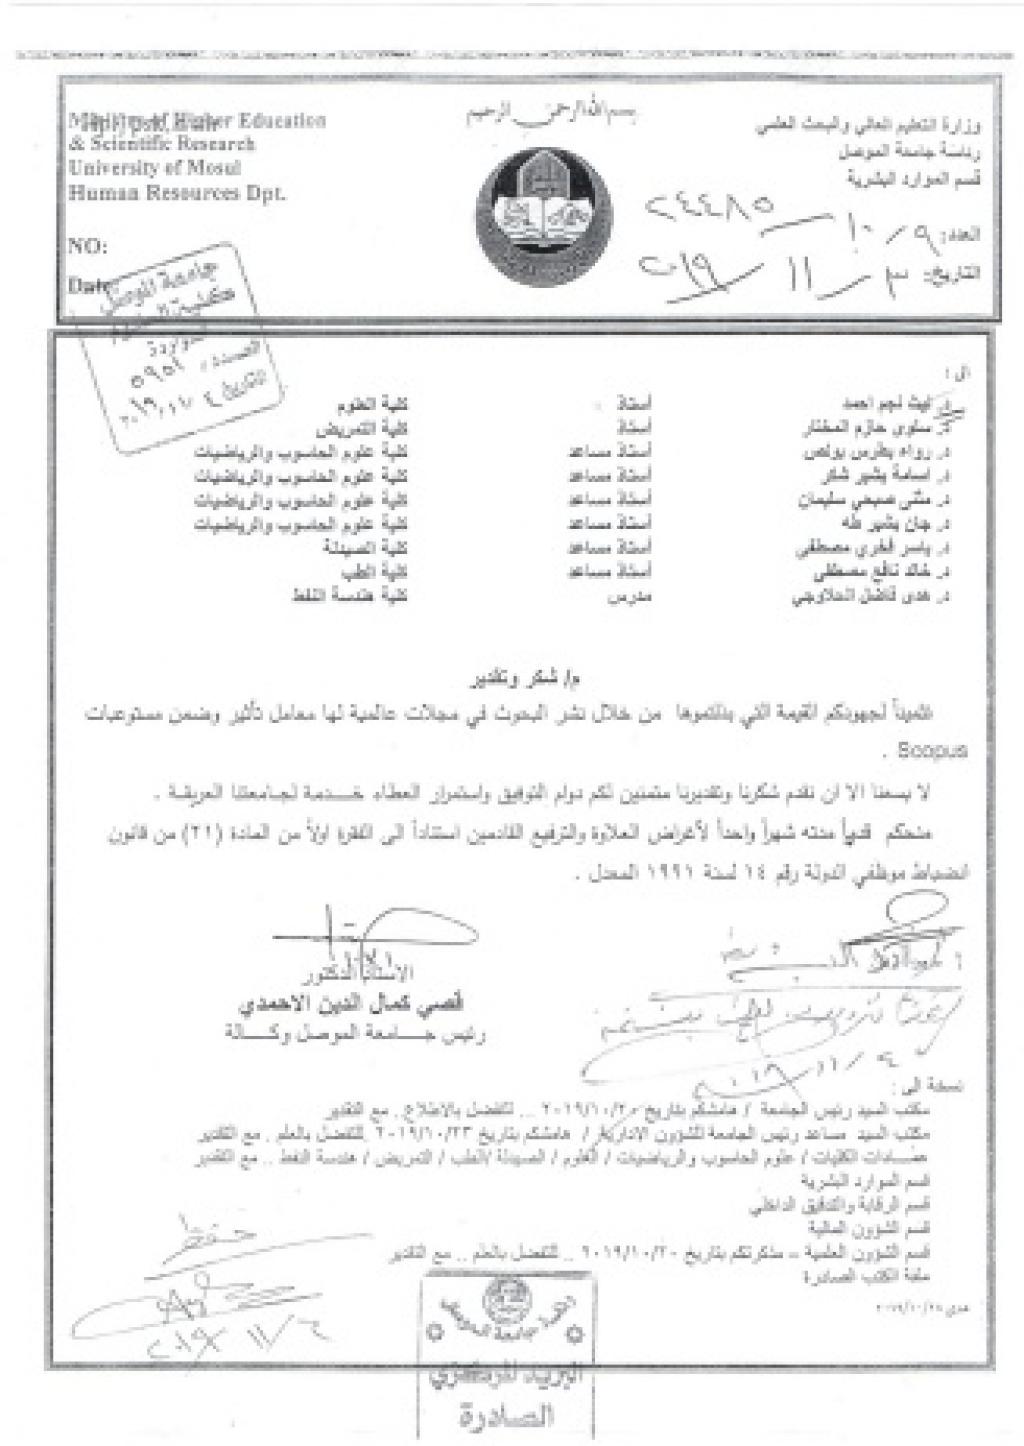 بسم الله الرحمن الرحيم
Ministry of Higher Education
& Scientific Research
University of Mosul
Human Resources Dpt.
NO:
Date:
وزارة التعليم العالي والبحث العلمي
رئاسة جامعة الموصل
قسم الموارد البشرية
العدد: ٩/١٠ ٢٤٤٨٥
التاريخ: ٣/١١/٢٠١٩
جامعة الموصل
كلية العلوم
الواردة
العدد: ٥٩٥٢
التاريخ ٤/١١/٢٠١٩
الى :
د. ليث نجم احمد أستاذ كلية العلوم
د. سلوى حازم المختار أستاذ كلية التمريض
د. رواء بطرس بولص أستاذ مساعد كلية علوم الحاسوب والرياضيات
د. اسامة بشير شكر أستاذ مساعد كلية علوم الحاسوب والرياضيات
د. مثنى صبحي سليمان أستاذ مساعد كلية علوم الحاسوب والرياضيات
د. جان بشير طه أستاذ مساعد كلية علوم الحاسوب والرياضيات
د. ياسر فخري مصطفى أستاذ مساعد كلية الصيدلة
د. خالد نافع مصطفى أستاذ مساعد كلية الطب
د. هدى فاضل الحلاوجي مدرس كلية هندسة النفط
م/ شكر وتقدير
تثميناً لجهودكم القيمة التي بذلتموها من خلال نشر البحوث في مجلات عالمية لها معامل تأثير وضمن مستوعبات
Scopus .
لا يسعنا الا ان نقدم شكرنا وتقديرنا متمنين لكم دوام التوفيق واستمرار العطاء خدمة لجامعتنا العريقة .
منحكم قدماً مدته شهراً واحداً لأغراض العلاوة والترفيع القادمين استناداً الى الفقرة اولاً من المادة (٢١) من قانون
انضباط موظفي الدولة رقم ١٤ لسنة ١٩٩١ المعدل .
الاستاذ الدكتور
قصي كمال الدين الاحمدي
رئيس جـــامعة الموصل وكـــالة
نسخة الى :
مكتب السيد رئيس الجامعة / هامشكم بتاريخ ٢٠١٩/١٠/٢٠ .. للتفضل بالاطلاع.. مع التقدير
مكتب السيد مساعد رئيس الجامعة للشؤون الادارية / هامشكم بتاريخ ٢٠١٩/١٠/٢٣ .للتفضل بالعلم.. مع التقدير
عمـــادات الكليات / علوم الحاسوب والرياضيات / العلوم / الصيدلة /الطب / التمريض / هندسة النفط .. مع التقدير
قسم الموارد البشرية
قسم الرقابة والتدقيق الداخلي
قسم الشؤون المالية
قسم الشؤون العلمية – مذكرتكم بتاريخ ٢٠١٩/١٠/٢٠ .. للتفضل بالعلم .. مع التقدير
ملفة الكتب الصادرة
هدى ٢٠١٩/١٠/٢٨
حفظ
رئاسة جامعة الموصل
البريد المركزي
الصادرة